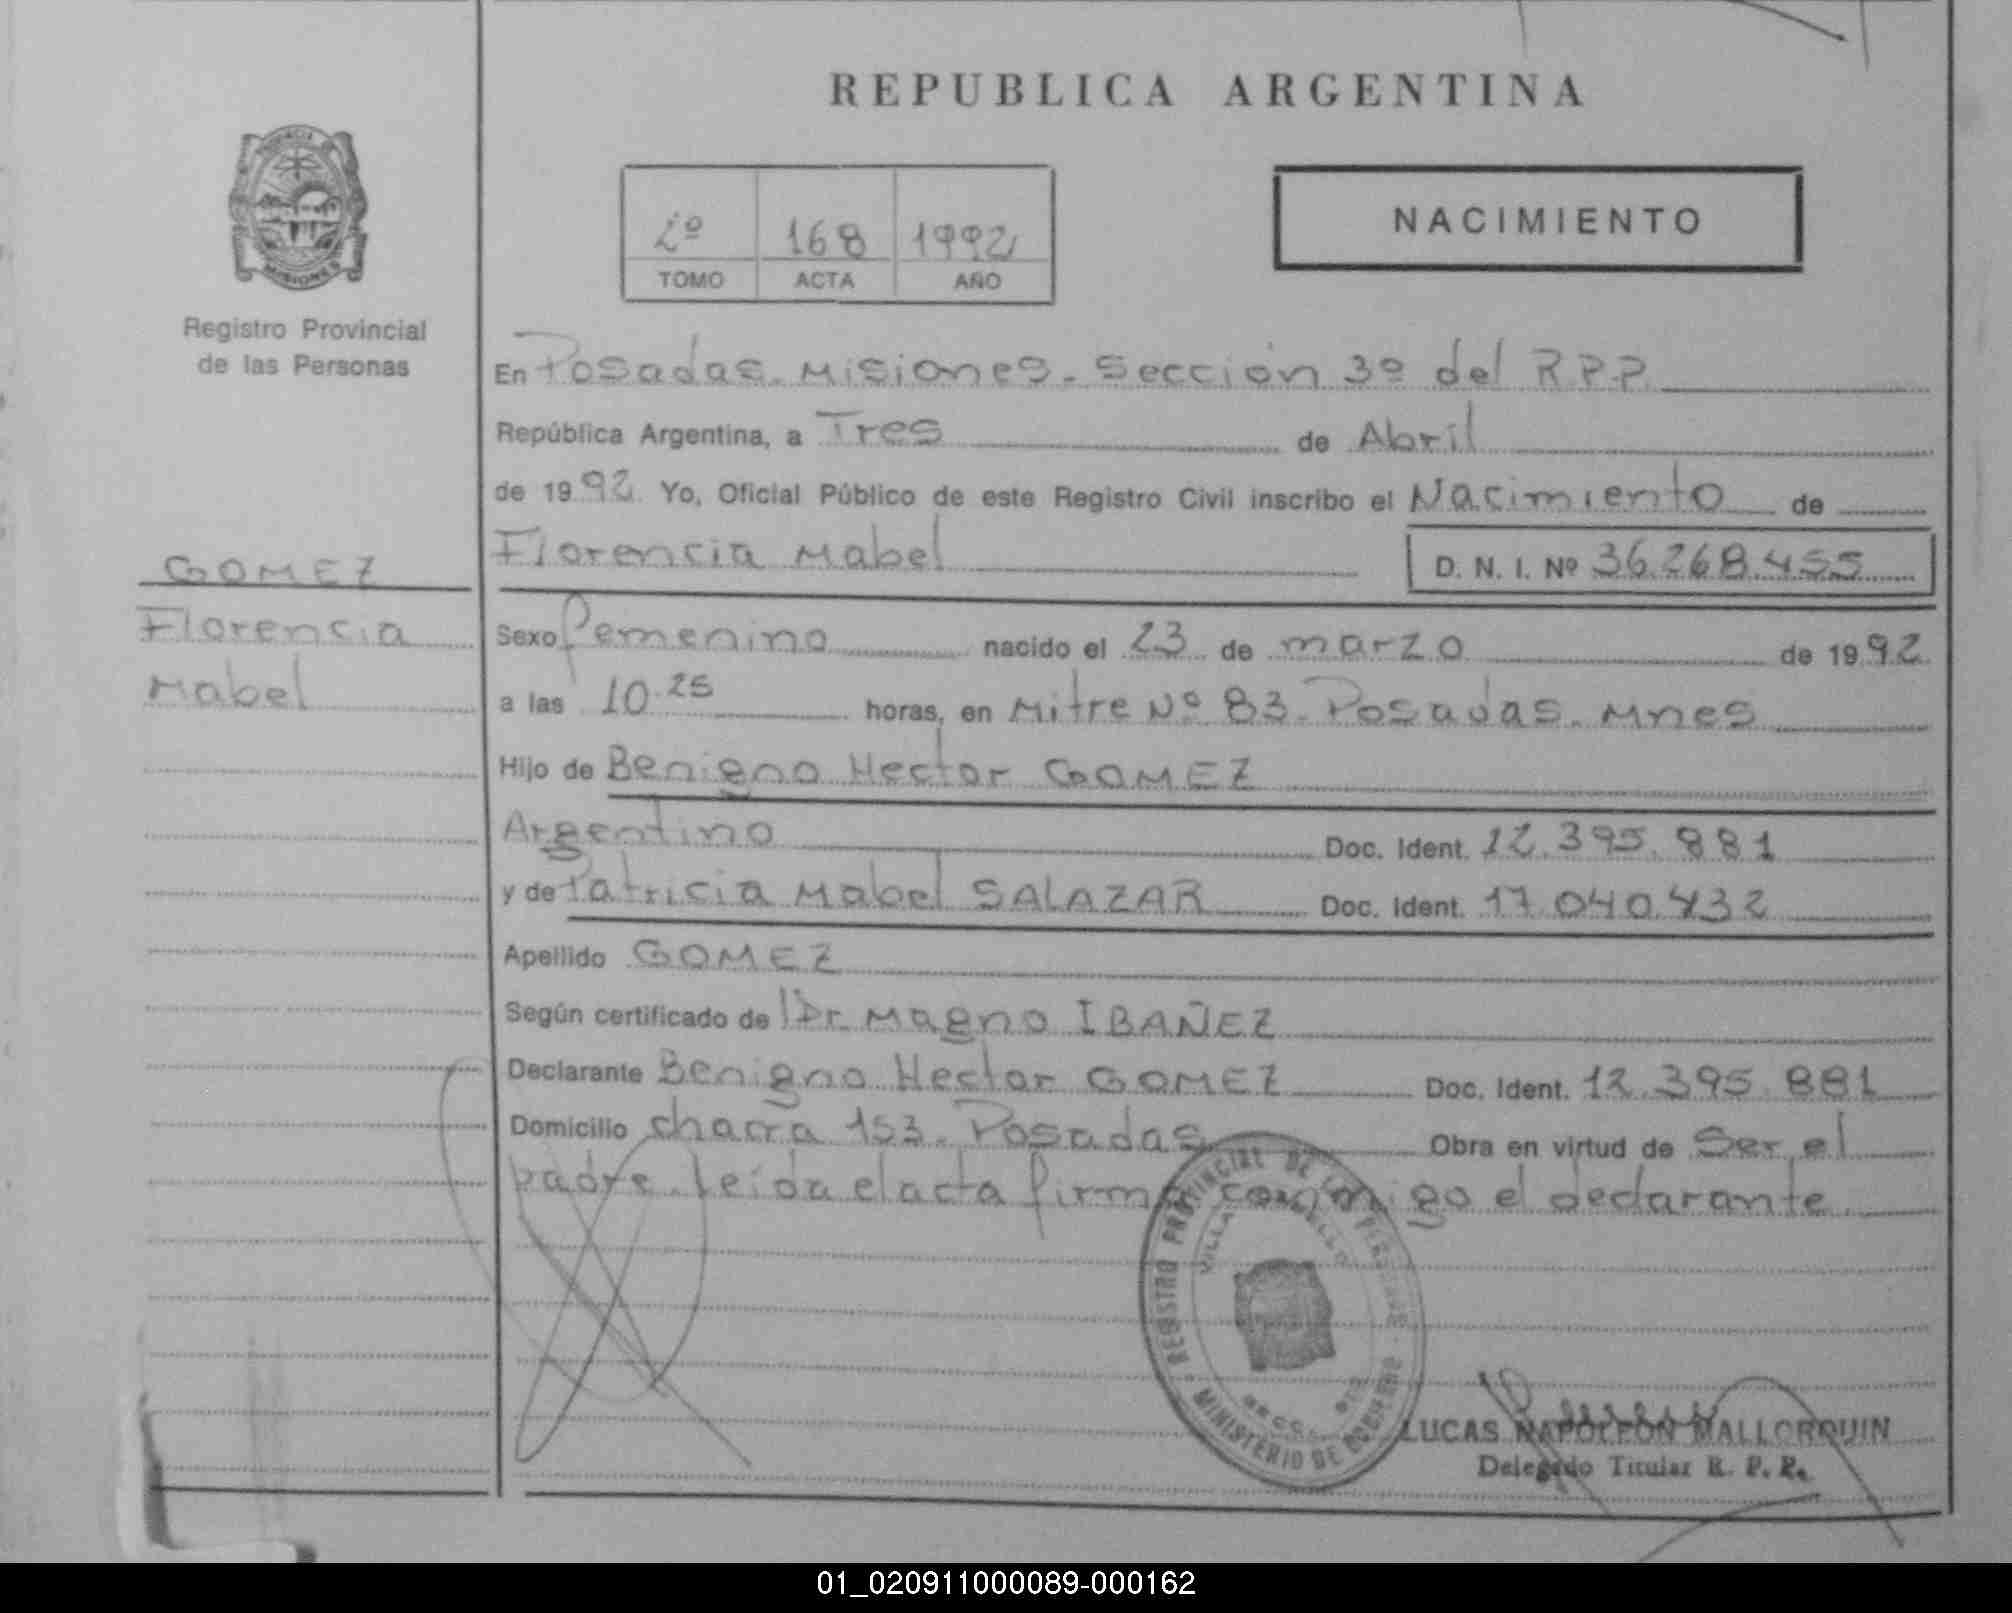 REPUBLICA ARGENTINA
NACIMIENTO
2º 168 1992
TOMO ACTA AÑO
MISIONES
Registro Provincial
de las Personas
En Posadas. Misiones. Sección 3º del R.P.P.
República Argentina, a Tres de Abril
de 1992. Yo, Oficial Público de este Registro Civil inscribo el Nacimiento de
Florencia Mabel D. N. I. Nº 36.268.455
GOMEZ
Florencia
Mabel
Sexo femenino nacido el 23 de marzo de 1992
a las 10.25 horas, en Mitre Nº 83. Posadas. Mnes
Hijo de Benigno Hector GOMEZ
Argentino Doc. Ident. 12.395.881
y de Patricia Mabel SALAZAR Doc. Ident. 17.040.432
Apellido GOMEZ
Según certificado de Dr. Magno IBAÑEZ
Declarante Benigno Hector GOMEZ Doc. Ident. 12.395.881
Domicilio chacra 153. Posadas Obra en virtud de Ser el
padre. Leída el acta firma conmigo el declarante
REGISTRO PROVINCIAL DE LAS PERSONAS
MINISTERIO DE GOBIERNO
VILLA
LUCAS NAPOLEON MALLORQUIN
Delegado Titular R. P. P.
01_020911000089-000162